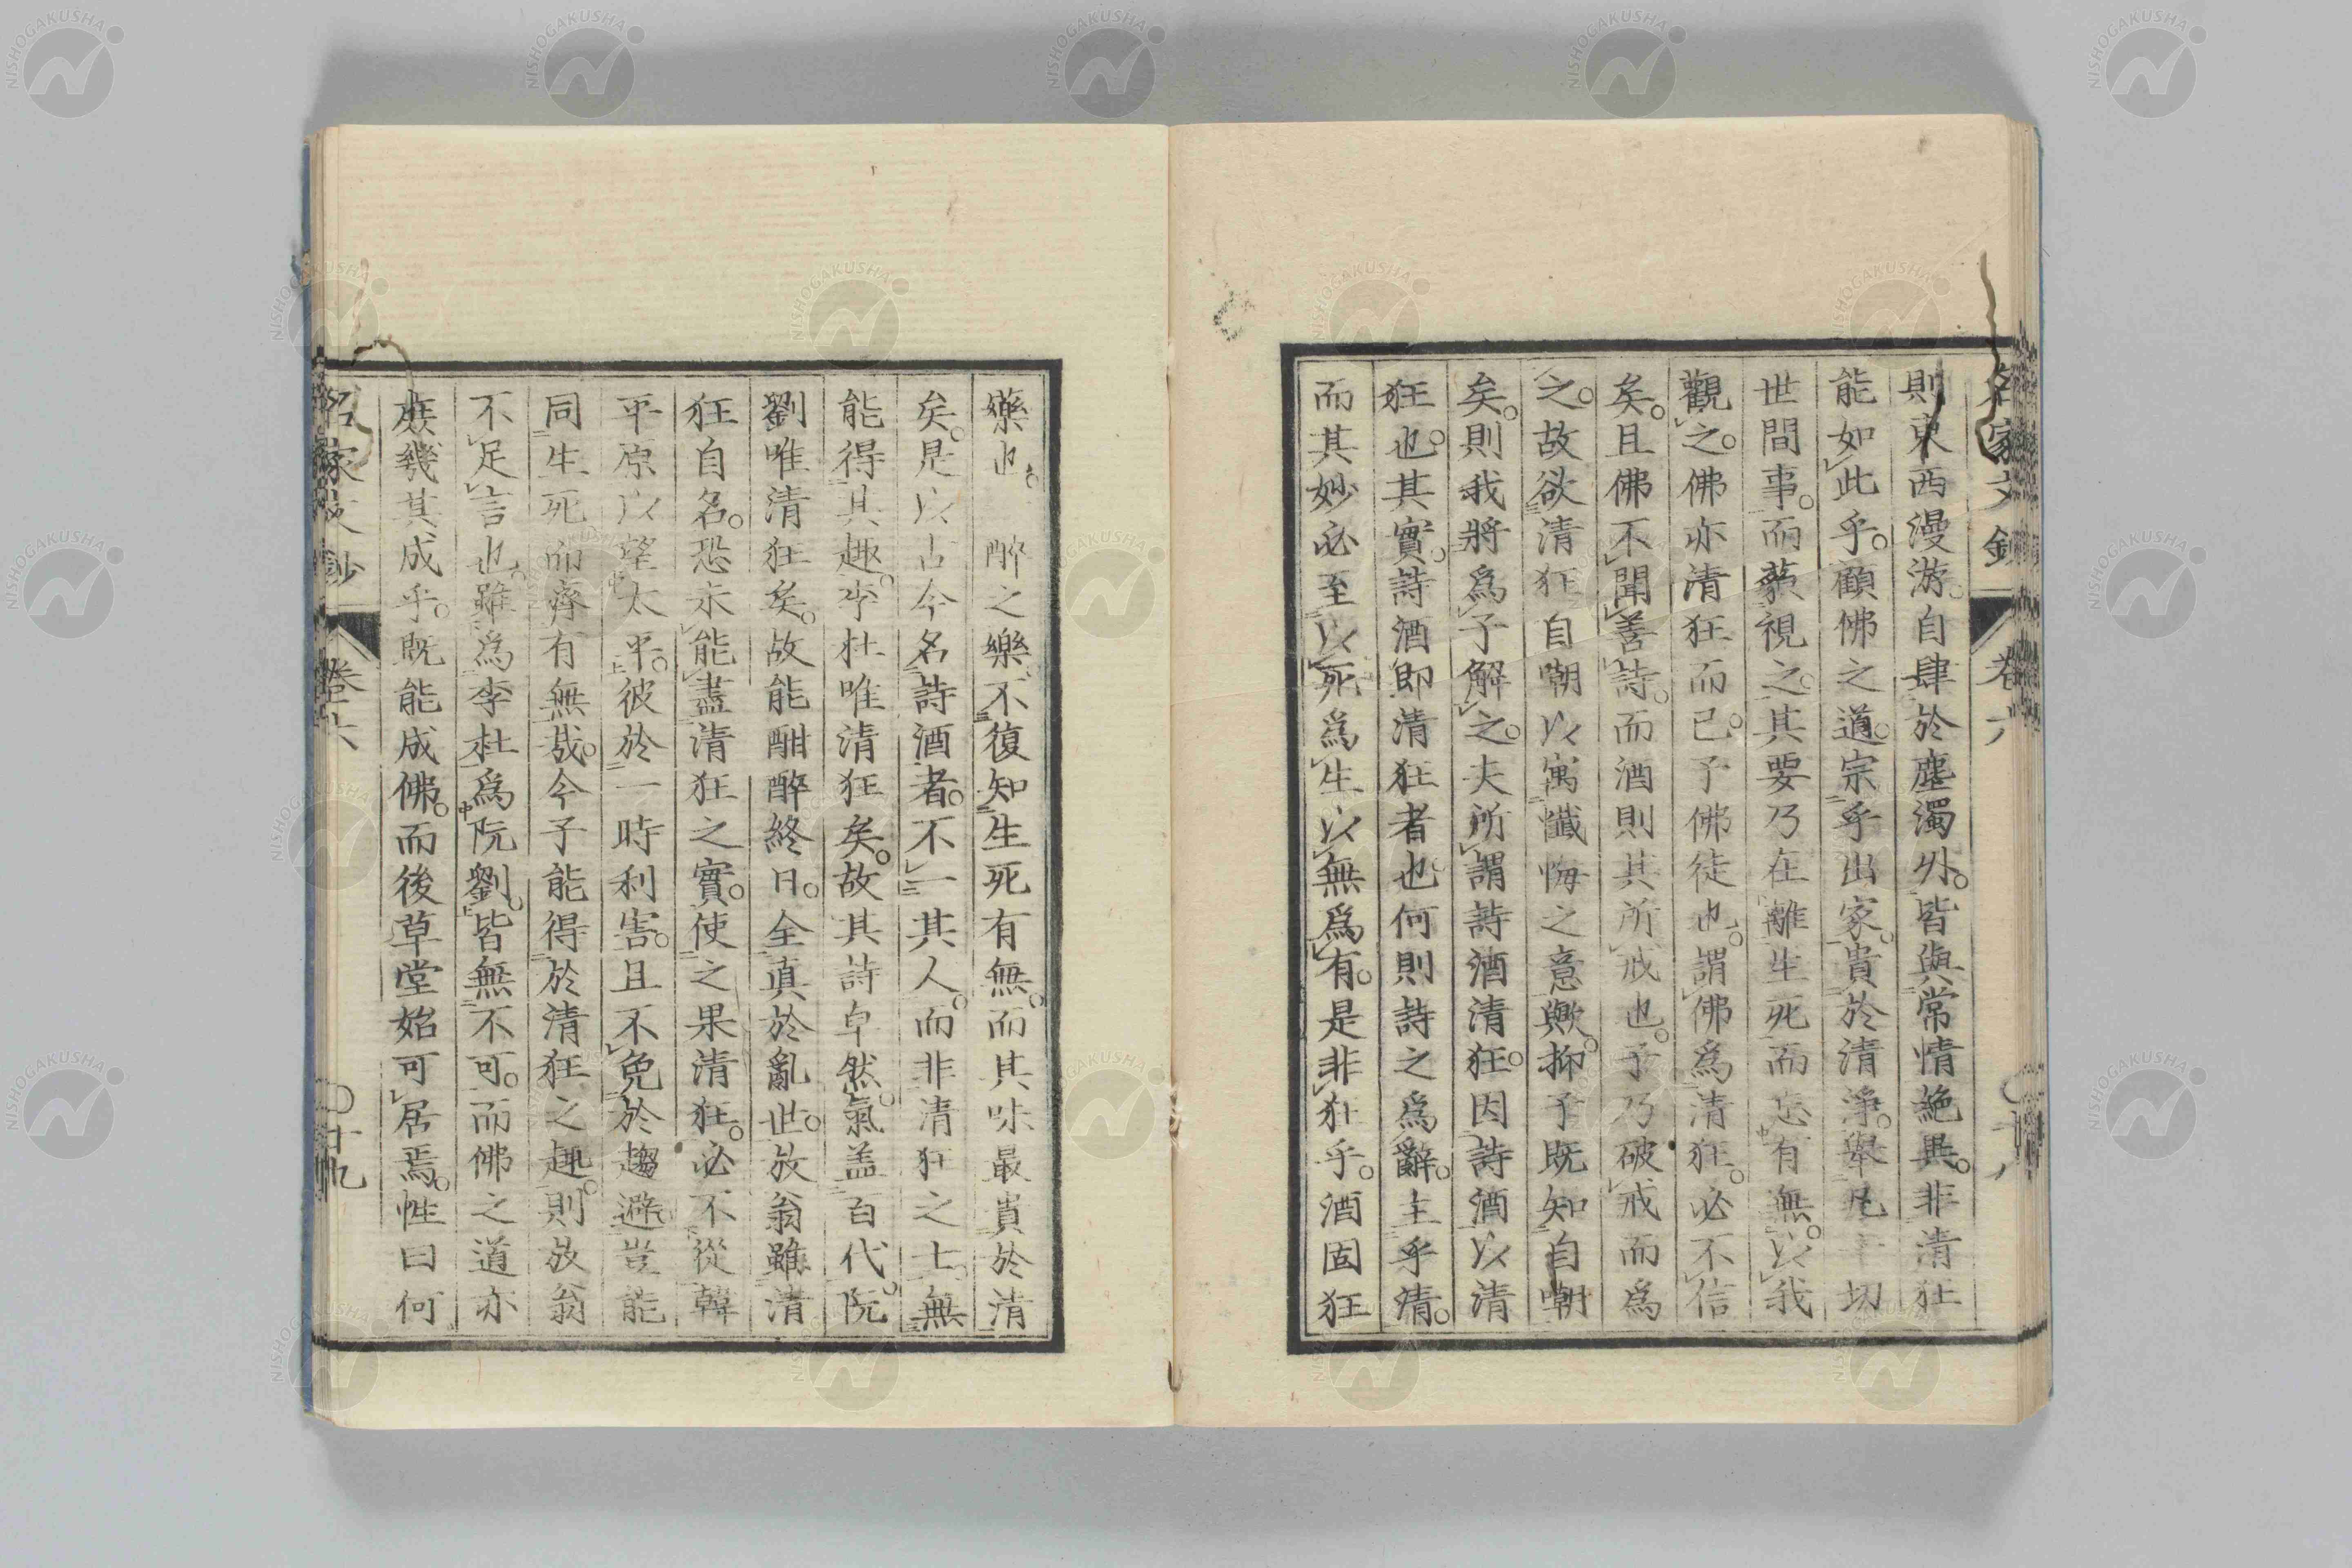 名家文鈔 卷六 〇十八
則東西漫游。自肆於塵濁外。皆與常情絶異。非清狂
能如此乎。顧佛之道。宗乎出家。貴於清淨。舉凡 切
世間事。而藐視之。其要乃在離生死而忘有無。以我
觀之。佛亦清狂而已。予佛徒也。謂佛爲清狂。必不信
矣。且佛不聞善詩。而酒則其所戒也。予乃破戒而爲
之。故欲清狂自嘲以寓懺悔之意歟。抑予既知自嘲
矣。則我將爲予解之。夫所謂詩酒清狂。因詩酒以清
狂也。其實。詩酒即清狂者也。何則詩之爲辭。主乎清。
而其妙必至以死爲生以無爲有。是非狂乎。酒固狂
藥也。 醉之樂不復知生死有無。而其味最貴於清
矣。是以古今名詩酒者。不一其人。而非清狂之士。無
能得其趣。李杜唯清狂矣。故其詩卓然。氣盖百代。阮
劉唯清狂矣。故能酣醉終日。全真於亂世。放翁雖清
狂自名。恐未能盡清狂之實。使之果清狂。必不從韓
平原以望太平。彼於一時利害。且不免於趨避豈能
同生死而齊有無哉。今予能得於清狂之趣。則放翁
不足言也。雖爲李杜爲阮劉。皆無不可。而佛之道亦
庶幾其成乎。既能成佛。而後草堂始可居焉。性曰何
名家文鈔 卷六 〇十九
NISHOGAKUSHA